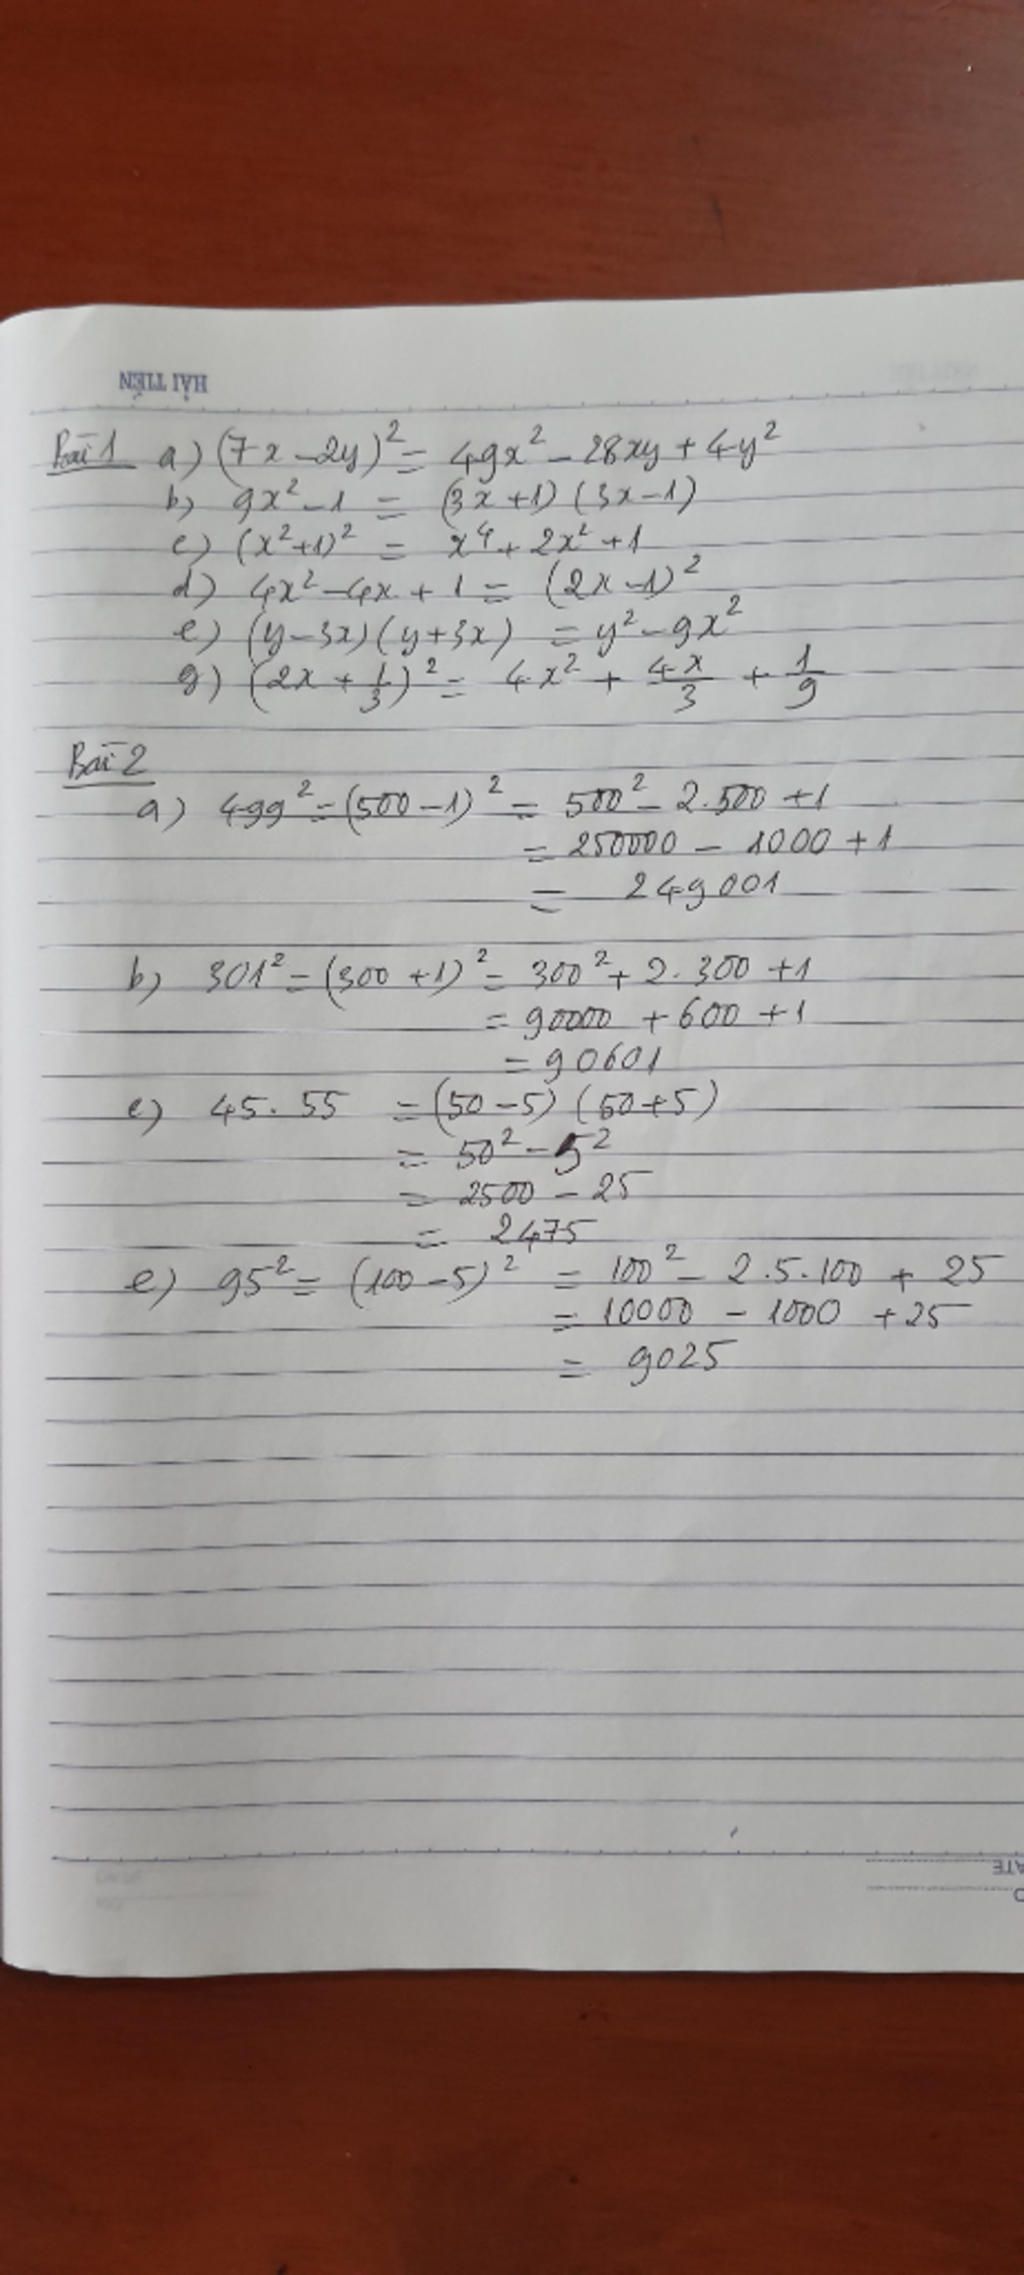 HẢI TIẾN
Bài 1 a) (7x - 2y)² = 49x² - 28xy + 4y²
b) 9x² - 1 = (3x + 1) (3x - 1)
c) (x² + 1)² = x⁴ + 2x² + 1
d) 4x² - 4x + 1 = (2x - 1)²
e) (y - 3x) (y + 3x) = y² - 9x²
g) (2x + 1/3)² = 4x² + 4x/3 + 1/9
Bài 2
a) 499² = (500 - 1)² = 500² - 2.500 + 1
= 250000 - 1000 + 1
= 249001
b) 301² = (300 + 1)² = 300² + 2.300 + 1
= 90000 + 600 + 1
= 90601
c) 45.55 = (50 - 5) (50 + 5)
= 50² - 5²
= 2500 - 25
= 2475
e) 95² = (100 - 5)² = 100² - 2.5.100 + 25
= 10000 - 1000 + 25
= 9025